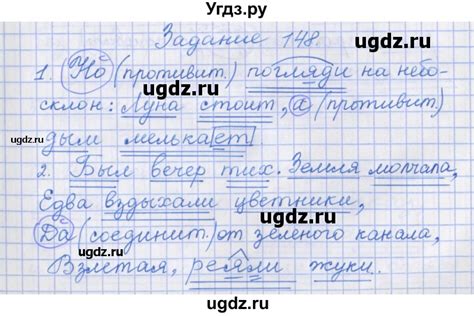 Угдз.ру
Задание 148.
ugdz.ru
1. Но (противит.) погляди на небо-
ugdz.ru
склон: Луна стоит, а (противит.)
ugdz.ru
дым мелькает
ugdz.ru
2. Был вечер тих. Земля молчала,
Едва вздыхали цветники,
ugdz.ru
ugdz.ru
Да (соединит.) от зеленого канала,
Взлетая, реяли жуки.
ugdz.ru
ugdz.ru
Угдз.ру